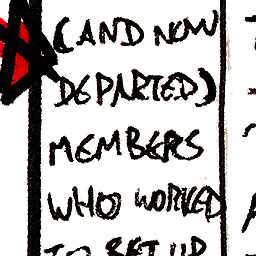 (AND NOW
DEPARTED)
MEMBERS
WHO WORKED
TO SET UP